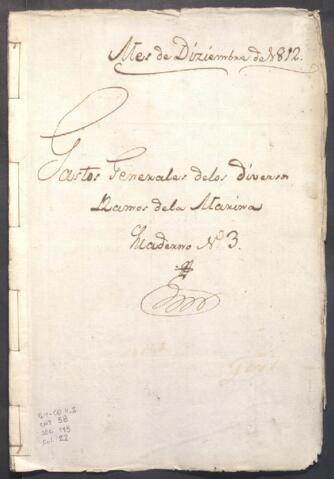 Mes de Diziembre de 1812.
Gastos Generales delos diversos
Ramos dela Marina
Quaderno N.o 3.
58
22